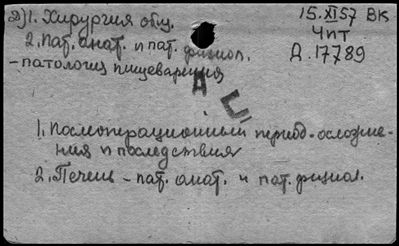 Д)1. Хирургия общ.
2. Пат. анат. и пат. физиол.
- патология пищеварения
15.XI 57 ВК
Чпт
Д. 17789
1. Послеоперационный период - осложне-
ния и последствия
2. Печень - пат. анат. и пат. физиол.